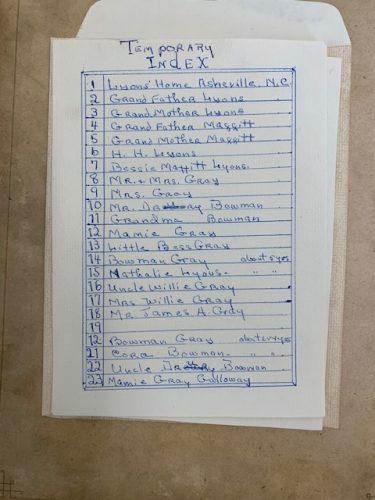 TEMPORARY
INDEX
1 Lyons' Home Asheville, N.C.
2 Grand Father Lyons
3 Grand Mother Lyons
4 Grand Father Maffitt
5 Grand Mother Maffitt
6 H. H. Lyons
7 Bessie Maffitt Lyons.
8 Mr. & Mrs. Gray
9 Mrs. Gray
10 Mr. Bowman
11 Grandma Bowman
12 Mamie Gray
13 Little Bess Gray
14 Bowman Gray about 5 yrs
15 Nathalie Lyons. " "
16 Uncle Willie Gray
17 Mrs Willie Gray
18 Mr James A. Gray
19
12 Bowman Gray about yrs
21 Cora Bowman. " "
22 Uncle Bowman
23 Mamie Gray Galloway